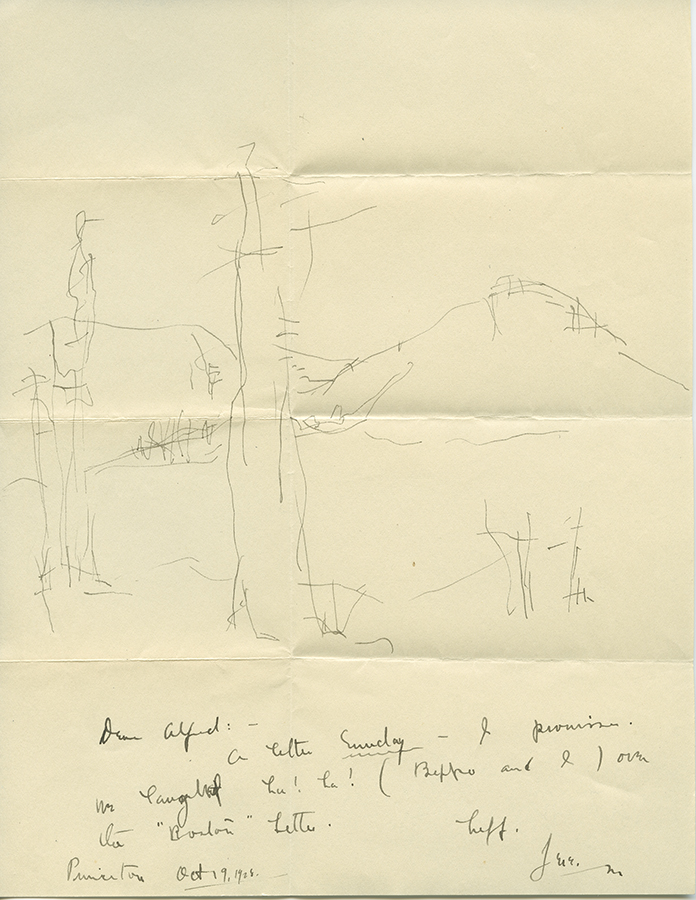 Dear Alfred: —
A letter Sunday — I promise.
We laughed ha! ha! ( Beppo and I ) over
the "Boston" letter.
Princeton Oct 19, 1925.